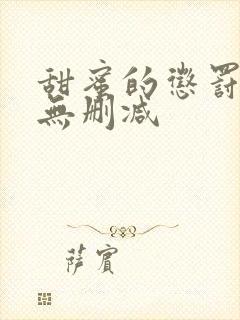 甜蜜的懲罰
無刪減
薩賓